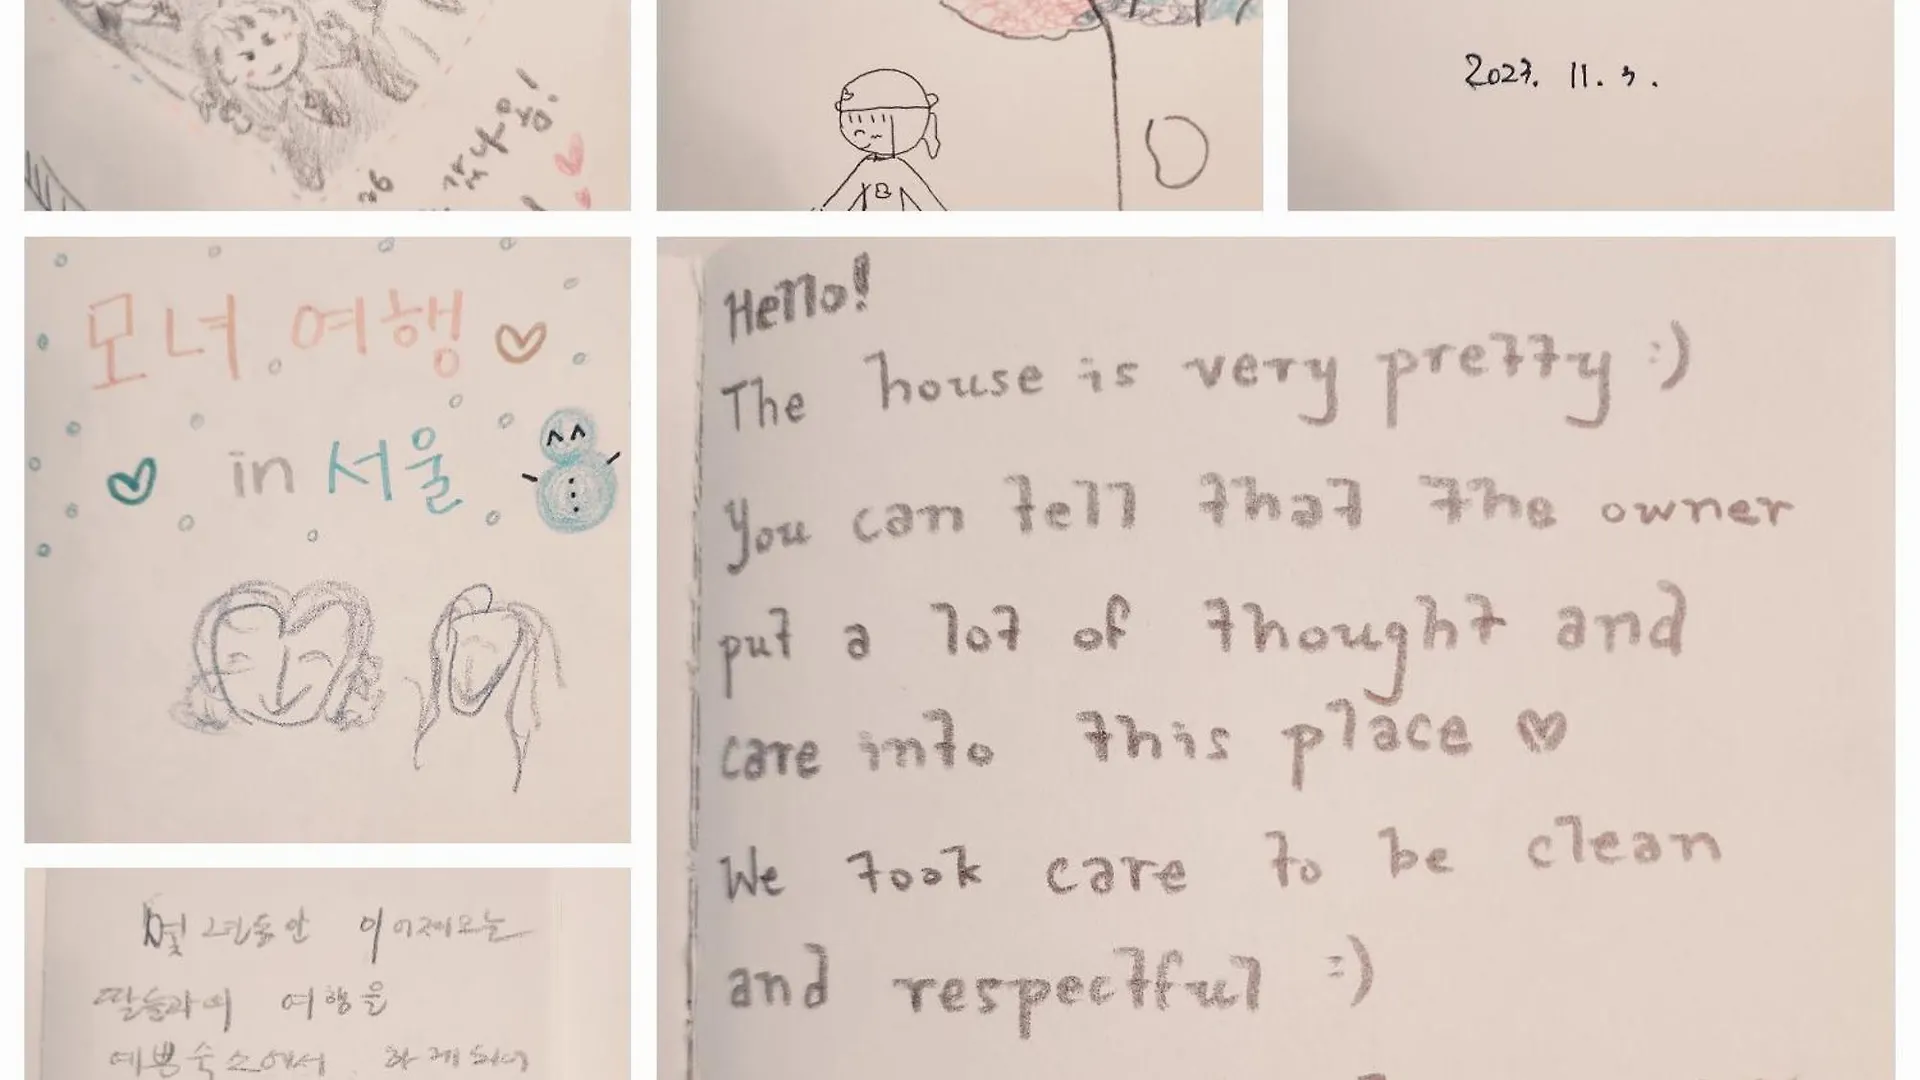 26
2023. 11. 3.
모녀 여행
in 서울
Hello!
The house is very pretty :)
You can tell that the owner
put a lot of thought and
care into this place ♡
We took care to be clean
and respectful :)
몇 년동안 이어져오는
딸들과의 여행을
예쁜숙소에서 하게되어